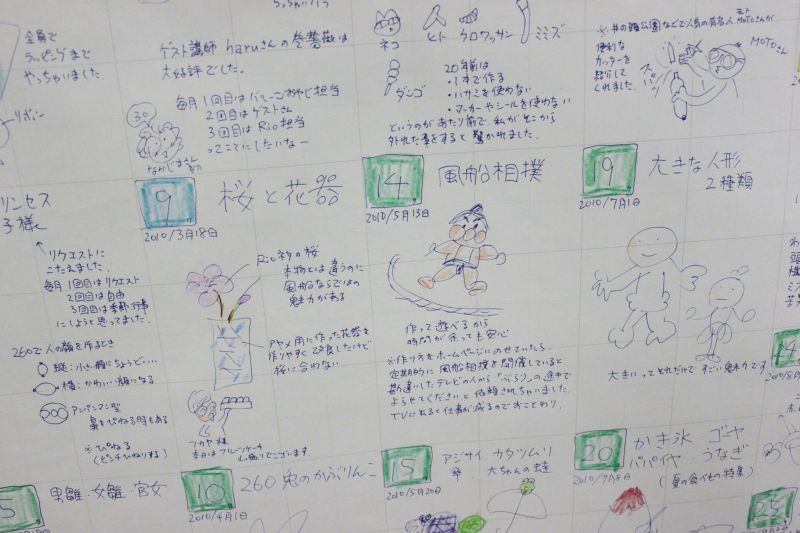 全員で
ラッピングまで
やっちゃいました。
リボン
リンセス
子様
↑
リクエストに
こたえました。
毎月1回目はリクエスト
2回目は自由
3回目は季節行事
にしようと思ってました。
260で人の顔を作るとき
縦:小さい顔にちょうどいい
横:かわいい顔になる
アンパンマン型
鼻をひねる時もある
※ひねる
(ピンチひねりする)
5
男雛・女雛・官女
ゲスト講師 haruさんの冬薔薇は
大好評でした。
毎月1回目はバルーンおやじ担当
2回目はゲストさん
3回目はRio担当
ってことにしたいなー
30
なかじまさん
9
桜と花器
2010/3月18日
Rio初の桜
本物とは違うのに
風船ならではの
魅力がある
アヤメ用に作った花器を
作りやすく改良したけど
桜に合わない
フカヤ様
本日はフルーツケーキ
山盛りでございます。
10
260 兎のかぶりんこ
2010/4月1日
ネコ
ヒト
クロワッサン
ミミズ
ダンゴ
20年前は
・1本で作る
・ハサミを使わない
・マーカーやシールを使わない
というのがあたり前で私がそこから
外れた事をすると驚かれました。
14
風船相撲
2010/5月13日
作って遊べるから
時間が余っても安心
※作り方をホームページにのせていたら、
定期的に風船相撲を開催していると
勘違いしたテレビの人から「ぶらり」の途中で
よらせてくださいと依頼されちゃいました。
TVに出ると仕事が減るのでおことわり。
15
アジサイ カタツムリ
傘 六ちゃんの蛙
2010/5月20日
※井の頭公園などで人気の有名人 MOTOさんが
モト
便利な
カッターを
紹介して
くれました。
スパッ
MOTOさん
19
大きな人形
2種類
2010/7月1日
大きいってそれだけですごい魅力です
20
かき氷 ゴーヤ
パパイヤ うなぎ
(夏の食べもの特集)
2010/7月8日
24
25